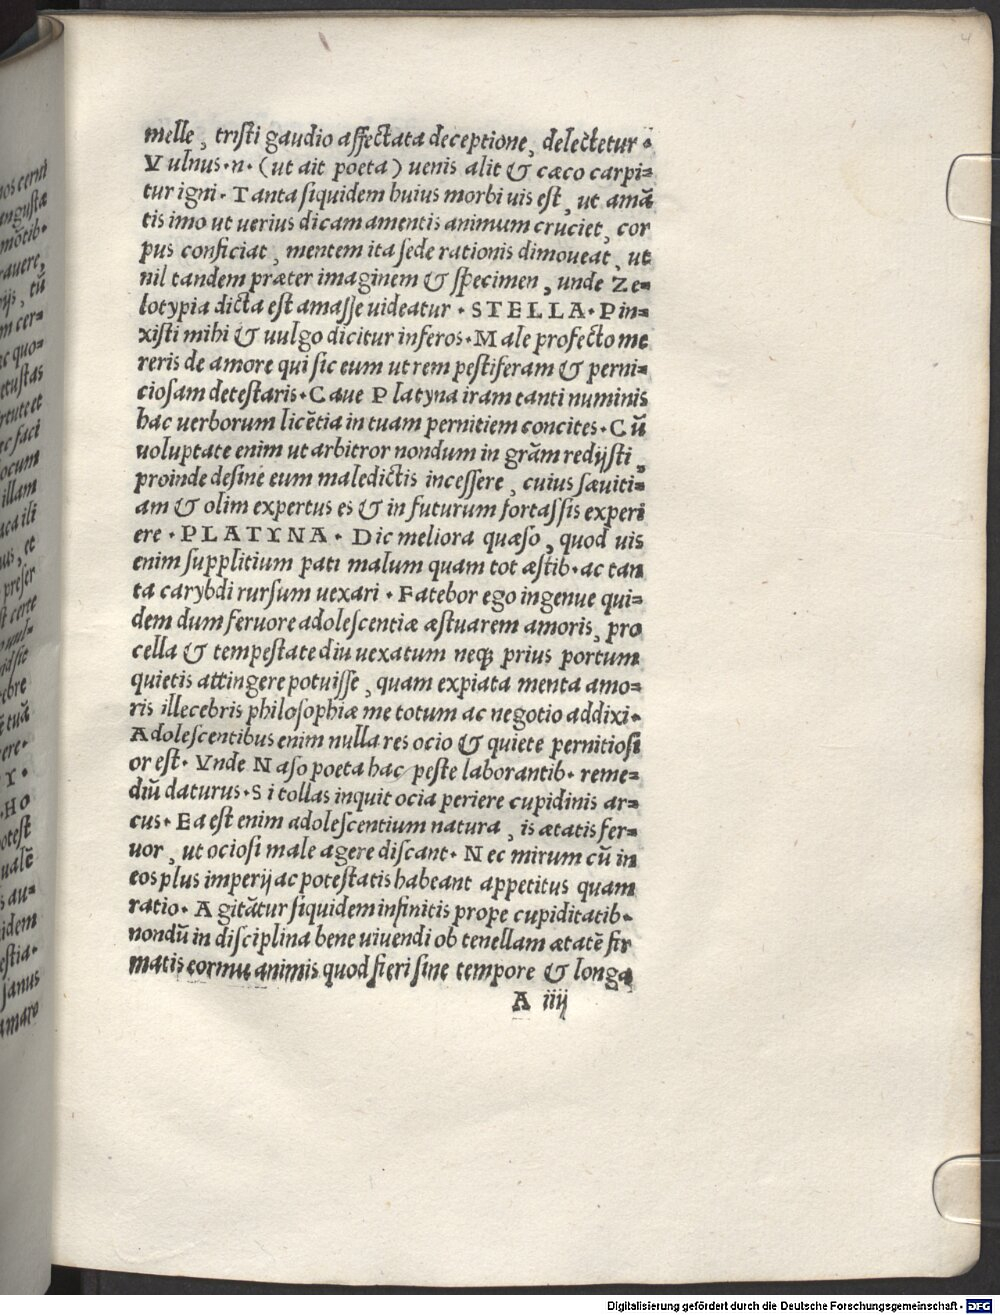 4
melle, tristi gaudio affectata deceptione, delectetur.
Vulnus.n. (ut ait poeta) uenis alit & cæco carpi=
tur igni. Tanta siquidem huius morbi uis est, ut amā
tis imo ut uerius dicam amentis animum cruciet, cor
pus conficiat, mentem ita sede rationis dimoueat, ut
nil tandem præter imaginem & specimen, unde Ze=
lotypia dicta est amasse uideatur. STELLA. Pin=
xisti mihi & uulgo dicitur inferos. Male profecto me
reris de amore qui sic eum ut rem pestiferam & perni=
ciosam detestaris. Caue Platyna iram tanti numinis
hac uerborum licētia in tuam pernitiem concites. Cū
uoluptate enim ut arbitror nondum in grām redijsti,
proinde desine eum maledictis incessere, cuius sæuiti=
am & olim expertus es & in futurum fortassis experi
ere. PLATYNA. Dic meliora quæso, quod uis
enim supplitium pati malum quam tot æstib. ac tan
ta carybdi rursum uexari. Fatebor ego ingenue qui=
dem dum feruore adolescentiæ æstuarem amoris, pro
cella & tempestate diu uexatum neqꝫ prius portum
quietis attingere potuisse, quam expiata menta amo=
ris illecebris philosophiæ me totum ac negotio addixi.
Adolescentibus enim nulla res ocio & quiete pernitiosi
or est. Vnde Naso poeta hac peste laborantib. reme=
diū daturus. Si tollas inquit ocia periere cupidinis ar=
cus. Ea est enim adolescentium natura, is ætatis fer=
uor, ut ociosi male agere discant. Nec mirum cū in
eos plus imperij ac potestatis habeant appetitus quam
ratio. Agitātur siquidem infinitis prope cupiditatib.
nondū in disciplina bene uiuendi ob tenellam ætatē fir
matis eorum animis quod fieri sine tempore & longa
A iiij
Digitalisierung gefördert durch die Deutsche Forschungsgemeinschaft - DFG